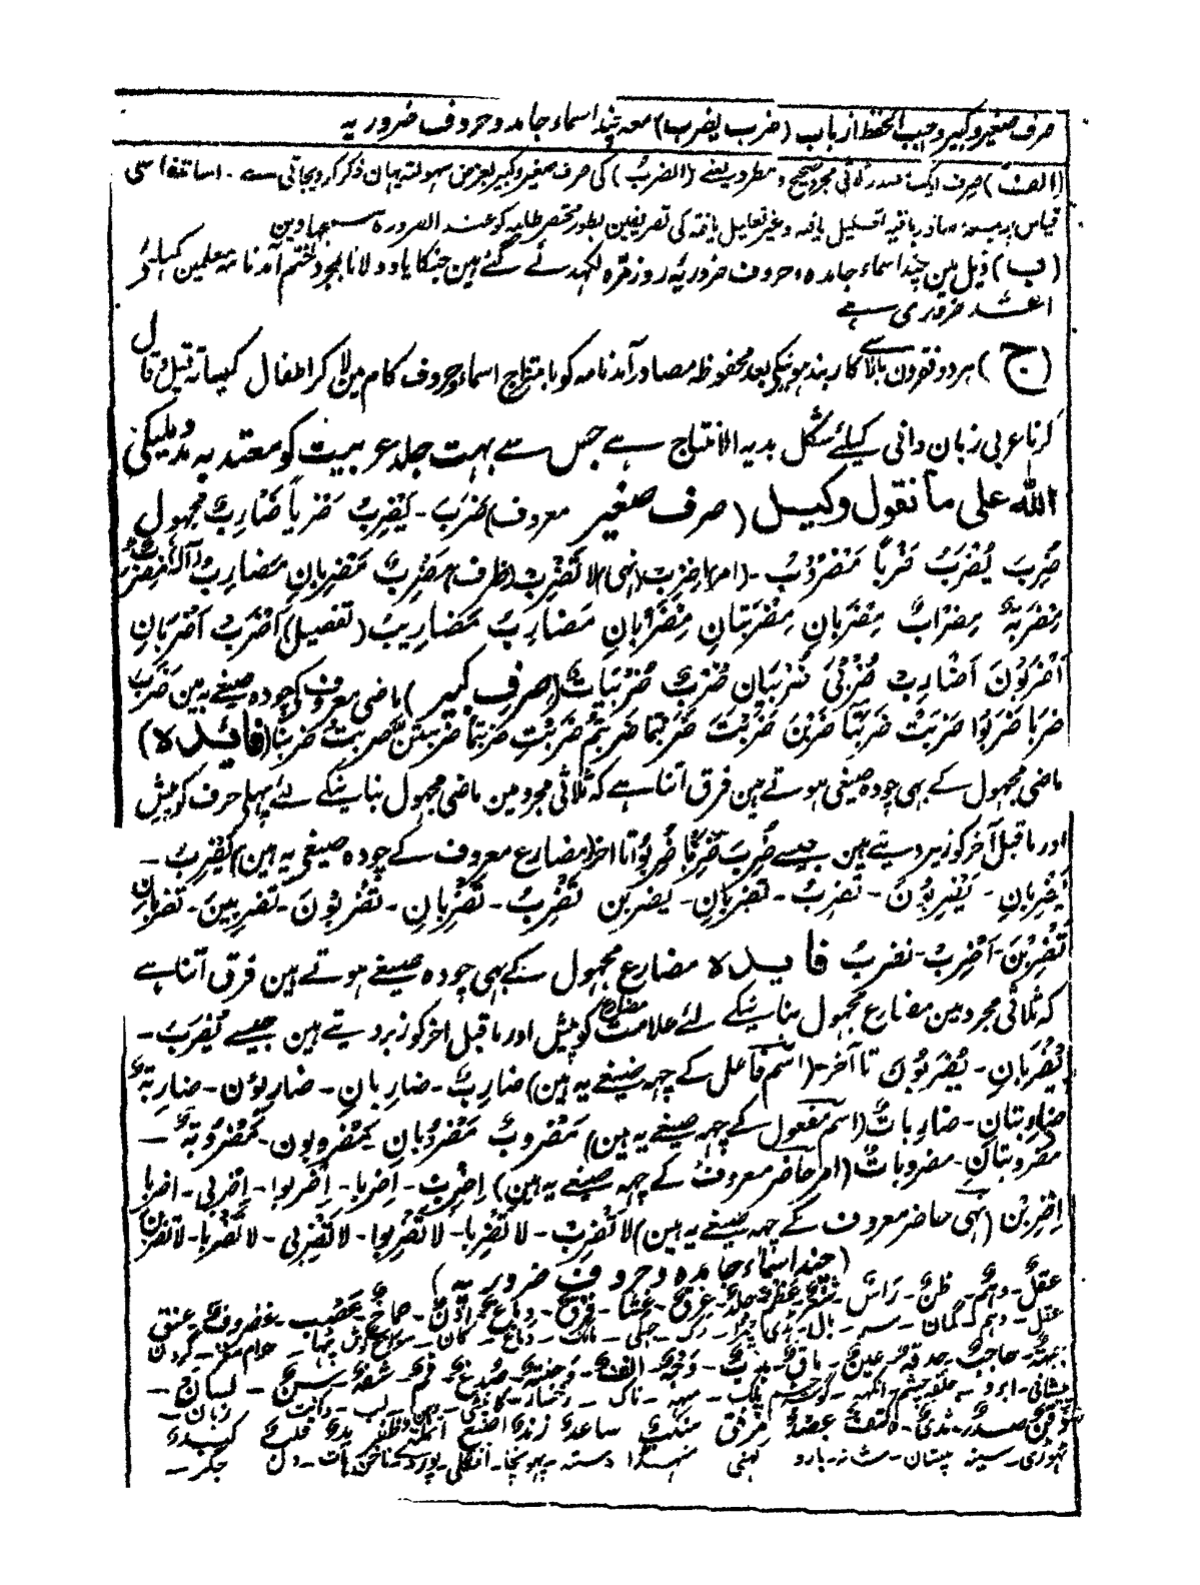 صرف صغیر و کبیر وجیب الحفظ از باب (ضرب یضرب) معہ چند اسماء جامد و حروف ضروریہ
(الف) صرف ایک مصدر ثلاثی مجرد صحیح و مطرد یعنے (الضربُ) کی صرف صغیر و کبیر بغرض سہولت یہان ذکر کر دیجاتی ہے۔ اساتذہ اسی
قیاس پر بقیہ تعلیل یافتہ و غیر تعلیل یافتہ کی تصریفین بطور مختصر طلبہ کو عند الضرورة سمجھاوین
(ب) ذیل مین چند اسماء جامدہ و حروف ضروریہ روزمرّہ لکہدئے گئے ہین جنکا یاد دلانا بمجرد ختم آمدنامہ معلمین کیلئے
اشد ضروری ہے
(ج) ہر دو فقرون بالا سے کاربند ہونیکی بعد محفوظہ مصادر آمدنامہ کو بامتزاج اسماء و حروف کام مین لا کر اطفال کیساتہ قیل و قال
کرنا عربی زبان دانی کیلئے شکل بدیہ الانتاج ہے جس سے بہت جلد عربیت کو معتد بہ مدد ملیگی و
اللہ علی ما نقول وکیل (صرف صغیر معروف) ضَرَبَ ۔ یَضْرِبُ ضَرْباً ضَارِبٌ مجہول
ضُرِبَ یُضْرَبُ ضَرْباً مَضْرُوْبٌ ۔ (امر) اِضْرِبْ (نہی) لَا تَضْرِبْ (ظرف) مَضْرِبٌ مَضْرِبَانِ مَضَارِبُ (آلہ) مِضْرَبٌ
مِضْرَبَةٌ مِضْرَابٌ مِضْرَبَانِ مِضْرَبَتَانِ مِضْرَابَانِ مَضَارِبُ مَضَارِیْبُ (تفضیل) اَضْرَبُ اَضْرَبَانِ
اَضْرَبُوْنَ اَضَارِبُ ضُرْبٰی ضُرْبَیَانِ ضُرَبٌ ضُرْبَیَاتٌ (صرف کبیر) ماضی معروف کے چودہ صیغے یہ ہین ضَرَبَ
ضَرَبَا ضَرَبُوْا ضَرَبَتْ ضَرَبَتَا ضَرَبْنَ ضَرَبْتَ ضَرَبْتُمَا ضَرَبْتُمْ ضَرَبْتِ ضَرَبْتُمَا ضَرَبْتُنَّ ضَرَبْتُ ضَرَبْنَا (فایدہ)
ماضی مجہول کے بہی چودہ صیغی ہوتے ہین فرق اتنا ہے کہ ثلاثی مجرد مین ماضی مجہول بنانیکے لئے پہلے حرف کو پیش
اور ماقبل آخر کو زیر دیتے ہین جیسے ضُرِبَ ضُرِبَا ضُرِبُوْا تا آخر (مضارع معروف کے چودہ صیغی یہ ہین) یَضْرِبُ ۔
یَضْرِبَانِ ۔ یَضْرِبُوْنَ ۔ تَضْرِبُ ۔ تَضْرِبَانِ ۔ یَضْرِبْنَ تَضْرِبُ ۔ تَضْرِبَانِ ۔ تَضْرِبُوْنَ ۔ تَضْرِبِیْنَ ۔ تَضْرِبَانِ
تَضْرِبْنَ ۔ اَضْرِبُ ۔ نَضْرِبُ فایدہ مضارع مجہول کے بہی چودہ صیغے ہوتے ہین فرق اتنا ہے
کہ ثلاثی مجرد مین مضارع مجہول بنانیکے لئے علامت مضارع کو پیش اور ماقبل اخر کو زبر دیتے ہین جیسے یُضْرَبُ ۔
یُضْرَبَانِ ۔ یُضْرَبُوْنَ تا آخر ۔ (اسم فاعل کے چہہ صیغے یہ ہین) ضَارِبٌ ۔ ضَارِبَانِ ۔ ضَارِبُوْنَ ۔ ضَارِبَةٌ
ضَارِبَتَانِ ۔ ضَارِبَاتٌ (اسم مفعول کے چہہ صیغے یہ ہین) مَضْرُوْبٌ مَضْرُوْبَانِ مَضْرُوْبُوْنَ ۔ مَضْرُوْبَةٌ ۔
مضروبتانِ ۔ مضروباتٌ (امر حاضر معروف کے چہہ صیغے یہ ہین) اِضْرِبْ ۔ اِضْرِبَا ۔ اِضْرِبُوا ۔ اِضْرِبِی ۔ اضربا
اِضْرِبْنَ (نہی حاضر معروف کے چہہ صیغے یہ ہین) لَا تَضْرِبْ ۔ لَا تَضْرِبَا ۔ لَا تَضْرِبُوا ۔ لَا تَضْرِبِی ۔ لَا تَضْرِبَا ۔ لَا تَضْرِبْنَ
(چند اسماء جامدہ و حروف ضروریہ)
عقلٌ ۔ وہمٌ ۔ ظنٌ ۔ رَاسٌ ۔ شَعْرٌ عَظْمٌ جلدٌ ۔ عِرقٌ ۔ فرقٌ ۔ دِمَاغٌ اُذُنٌ ۔ صماخٌ عَصَب ۔ غضروفٌ عنق
عقل ۔ وہم ۔ گمان ۔ سر ۔ بال ۔ ہڈی ۔ رگ ۔ مانگ ۔ دماغ ۔ کان ۔ سوراخ گوش پٹہا ۔ گردن
جبہةٌ ۔ حاجبٌ حدقةٌ عینٌ ۔ ماقٌ ۔ ہدبٌ ۔ وَجْہٌ ۔ انفٌ ۔ وجنةٌ ۔ صُدغٌ فمٌ ۔ شفةٌ ۔ سِنٌ ۔ لسانٌ ۔
پیشانی ۔ ابرو ۔ حلقہ چشم ۔ انکہہ ۔ گوشہ چشم پلک ۔ منہہ ۔ ناک ۔ رخسار ۔ کنپٹی ۔ دہن ۔ لب ۔ دانت ۔ زبان ۔
ذقنٌ صدرٌ ۔ ثدیٌ ۔ کتفٌ عضدٌ مِرفق منکبٌ ساعدٌ زندٌ اصبعٌ انملةٌ ظفرٌ یدٌ قلبٌ کبدٌ
ٹہوڑی ۔ سینہ پستان ۔ شانہ ۔ بازو کہنی دستہ ۔ پہونچا ۔ انگلی ۔ پور ۔ ناخن ۔ ہات ۔ دل جگر ۔